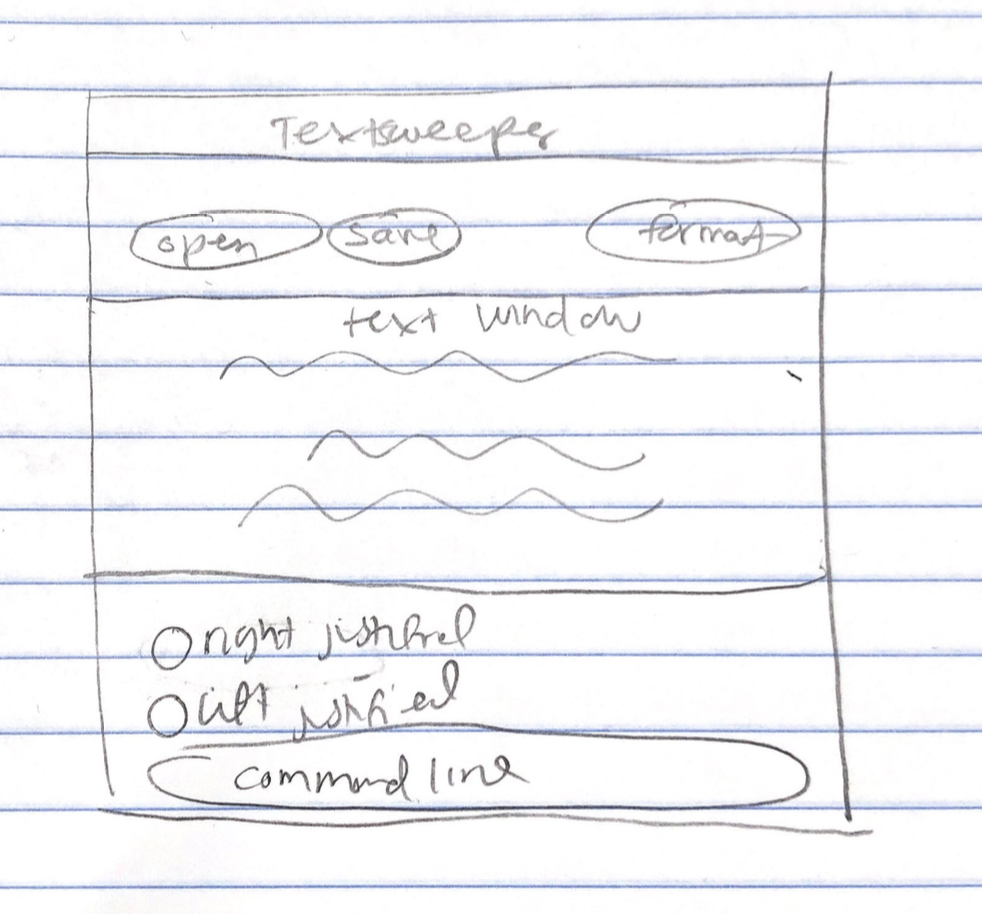 Textsweeper
open save format
text window
right justified
left justified
command line